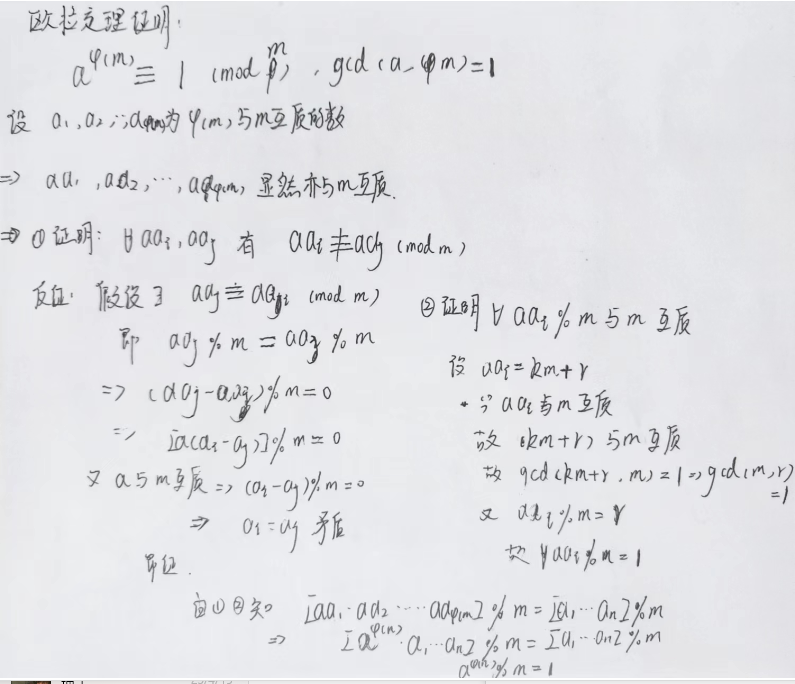 欧拉定理证明:
a^φ(m) ≡ 1 (mod m), gcd(a, m)=1
设 a₁,a₂,…,aφ(m)为φ(m)与m互质的数
=> aa₁,aa₂,…,aaφ(m),显然亦与m互质.
=> ①证明: ∀aaᵢ,aaⱼ 有 aaᵢ≢aaⱼ (mod m)
反证: 假设∃ aaⱼ≡aaᵢ (mod m)
即 aaⱼ%m = aaᵢ%m
=> (aaⱼ-aaᵢ)%m=0
=> [a(aᵢ-aⱼ)]%m=0
又a与m互质=>(aᵢ-aⱼ)%m=0
=> aᵢ=aⱼ 矛盾
即证.
②证明∀aaᵢ%m与m互质
设 aaᵢ=km+r
∵aaᵢ与m互质
故(km+r)与m互质
故gcd(km+r,m)=1=>gcd(m,r)
=1
又 aaᵢ%m=r
故∀aaᵢ%m=1
由①②知 [aa₁·aa₂·…·aaφ(m)]%m=[a₁…aₙ]%m
=> [a^φ(n)·a₁…aₙ]%m=[a₁…aₙ]%m
a^φ(n)%m=1